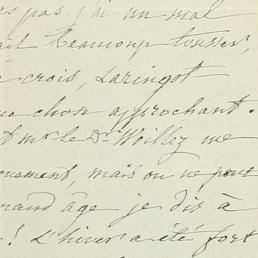 pas j'ai un mal
fait beaucoup tousser,
crois, Laringot
que chose approchant.
et mr le Dr Woillez me
moment, mais on ne peut
grand âge je dis à
! L'hiver a été fort